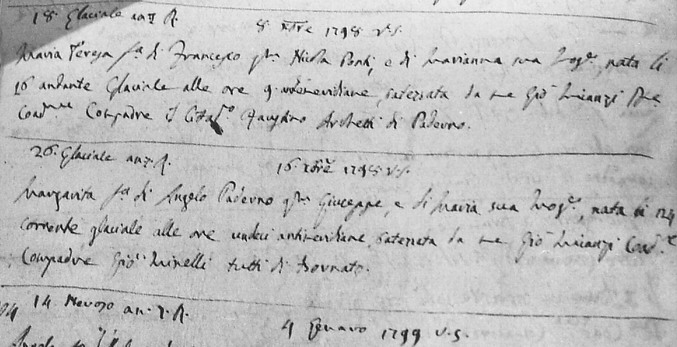 18. Glaciale an. 7 R. 8 Xbre 1798 v.s.
Maria Teresa fa. di Francesco qm. Nicola Ponti, e di Marianna sua Mogle., nata li
16 andante Glaciale alle ore 9. antimeridiane, batezzata da me Gio
Compadre il Citado. Faustino Archetti di Paderno.
26. Glaciale an. 7 R. 16. Xbre 1798 v.s.
Margarita fa. di Angelo Paderno qm. Giuseppe, e di Maria sua Mogle., nata li 24
corrente glaciale alle ore undeci antimeridiane, batezzata da me Gio
Compadre Gio Minelli tutti di Bornato.
14 Nevoso an. 7. R. 4 Genaro 1799 v.s.